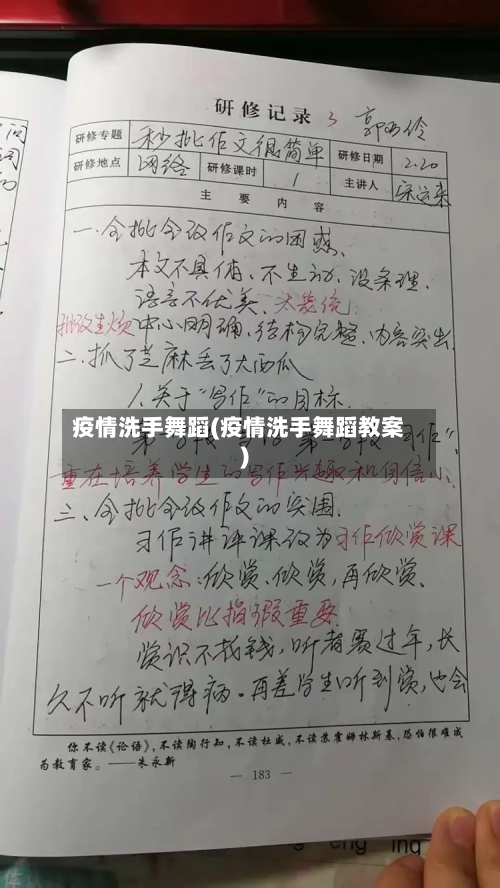 研修记录 3
研修专题 秒批作文很简单 研修日期 2.20
研修地点 网络 研修课时 1 主讲人
主要内容
一.全批全改作文的困惑.
本文不具体、不生动、没条理、
语言不优美、太笼统
中心明确,结构完整、内容突出.
二.抓了芝麻丢了大西瓜
1.关于“写作”的目标.
疫情洗手舞蹈(疫情洗手舞蹈教案
)
重在培养学生的写作兴趣和自信心
三、全批全改作文的突围.
习作讲评课改为习作欣赏课
一个观念:欣赏、欣赏,再欣赏、
欣赏比指瑕重要
赏识不花钱,听者要过年,长
久不听就得病.再差学生听到赏,也会
你不读《论语》,不读陶行知,不读杜威,不读苏霍姆林斯基,恐怕很难成
为教育家。——朱永新
— 183 —
eng ing